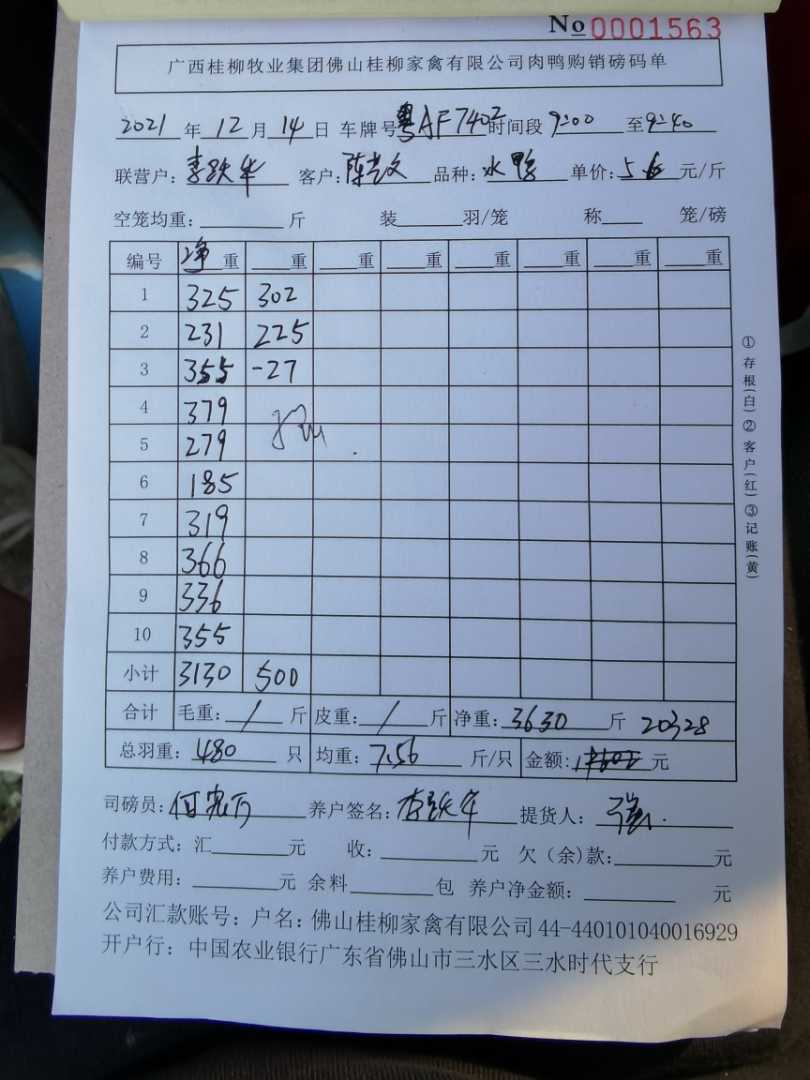 No 0001563
广西桂柳牧业集团佛山桂柳家禽有限公司肉鸭购销磅码单
2021 年 12 月 14 日 车牌号 粤AF7402 时间段 9:00 至 9:40
联营户: 李跃华 客户: 陈 文 品种: 水鸭 单价: 5.6 元/斤
空笼均重: 斤 装 羽/笼 称 笼/磅
编号 净重 重 重 重 重 重 重 重
1 325 302
2 231 225
3 355 -27
4 379
5 279
6 185
7 319
8 366
9 336
10 355
小计 3130 500
合计 毛重: / 斤 皮重: / 斤 净重: 3630 斤 20328
总羽重: 480 只 均重: 7.56 斤/只 金额: 元
司磅员: 何 养户签名: 李跃华 提货人: 强
付款方式: 汇 元 收: 元 欠(余)款: 元
养户费用: 元 余料 包 养户净金额: 元
公司汇款账号: 户名: 佛山桂柳家禽有限公司 44-440101040016929
开户行: 中国农业银行广东省佛山市三水区三水时代支行
①存根(白)②客户(红)③记账(黄)